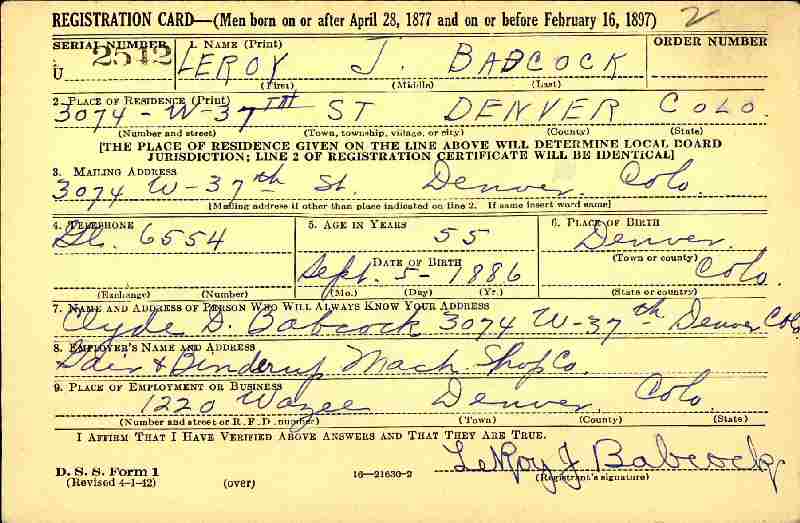 REGISTRATION CARD—(Men born on or after April 28, 1877 and on or before February 16, 1897) 2
SERIAL NUMBER 1. NAME (Print) ORDER NUMBER
U 2512 LEROY J. BABCOCK
(First) (Middle) (Last)
2. PLACE OF RESIDENCE (Print)
3074 - W-37TH ST DENVER COLO.
(Number and street) (Town, township, village, or city) (County) (State)
[THE PLACE OF RESIDENCE GIVEN ON THE LINE ABOVE WILL DETERMINE LOCAL BOARD
JURISDICTION; LINE 2 OF REGISTRATION CERTIFICATE WILL BE IDENTICAL]
3. MAILING ADDRESS
3074 W-37th St. Denver, Colo.
[Mailing address if other than place indicated on line 2. If same insert word same]
4. TELEPHONE 5. AGE IN YEARS 6. PLACE OF BIRTH
6554 55 Denver.
DATE OF BIRTH (Town or county)
Sept. 5 - 1886 Colo.
(Exchange) (Number) (Mo.) (Day) (Yr.) (State or country)
7. NAME AND ADDRESS OF PERSON WHO WILL ALWAYS KNOW YOUR ADDRESS
Clyde D. Babcock 3074 W-37th Denver Colo
8. EMPLOYER'S NAME AND ADDRESS
& Binderup Mach. Shop Co.
9. PLACE OF EMPLOYMENT OR BUSINESS
1220 Wazee Denver, Colo
(Number and street or R. F. D. number) (Town) (County) (State)
I AFFIRM THAT I HAVE VERIFIED ABOVE ANSWERS AND THAT THEY ARE TRUE.
LeRoy J Babcock
D. S. S. Form 1 16—21630-2 (Registrant's signature)
(Revised 4-1-42) (over)